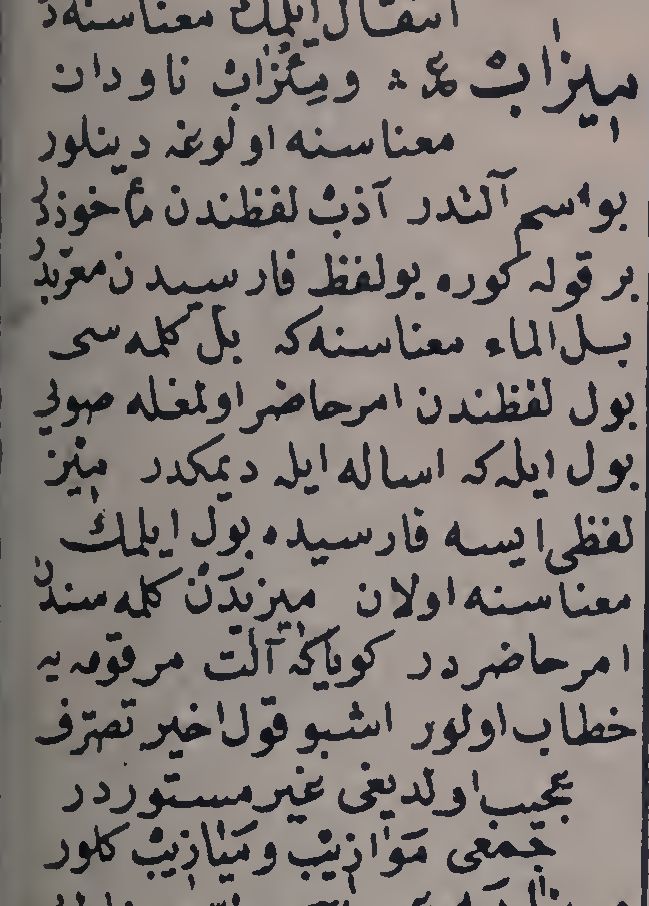 انتقال ایلمك معناسنه د
میزاب ع م ؞ ومئزاب ناودان
معناسنه اولوغه دینلور
بو اسم آلتدر آذب لفظندن مأخوذدر
بر قوله كوره بو لفظ فارسیدن معربدر
بل الماء معناسنه كه بل كلمه سی
بول لفظندن امر حاضر اولمغله صویی
بول ایله كه اساله ایله دیمكدر میز
لفظی ایسه فارسیده بول ایلمك
معناسنه اولان میزیدن كلمه سندن
امر حاضردر كویاكه آلت مرقومه یه
خطاب اولور اشبو قول اخیر تصرف
عجیب اولدیغی غیر مستوردر
جمعی موازیب ومیازیب كلور